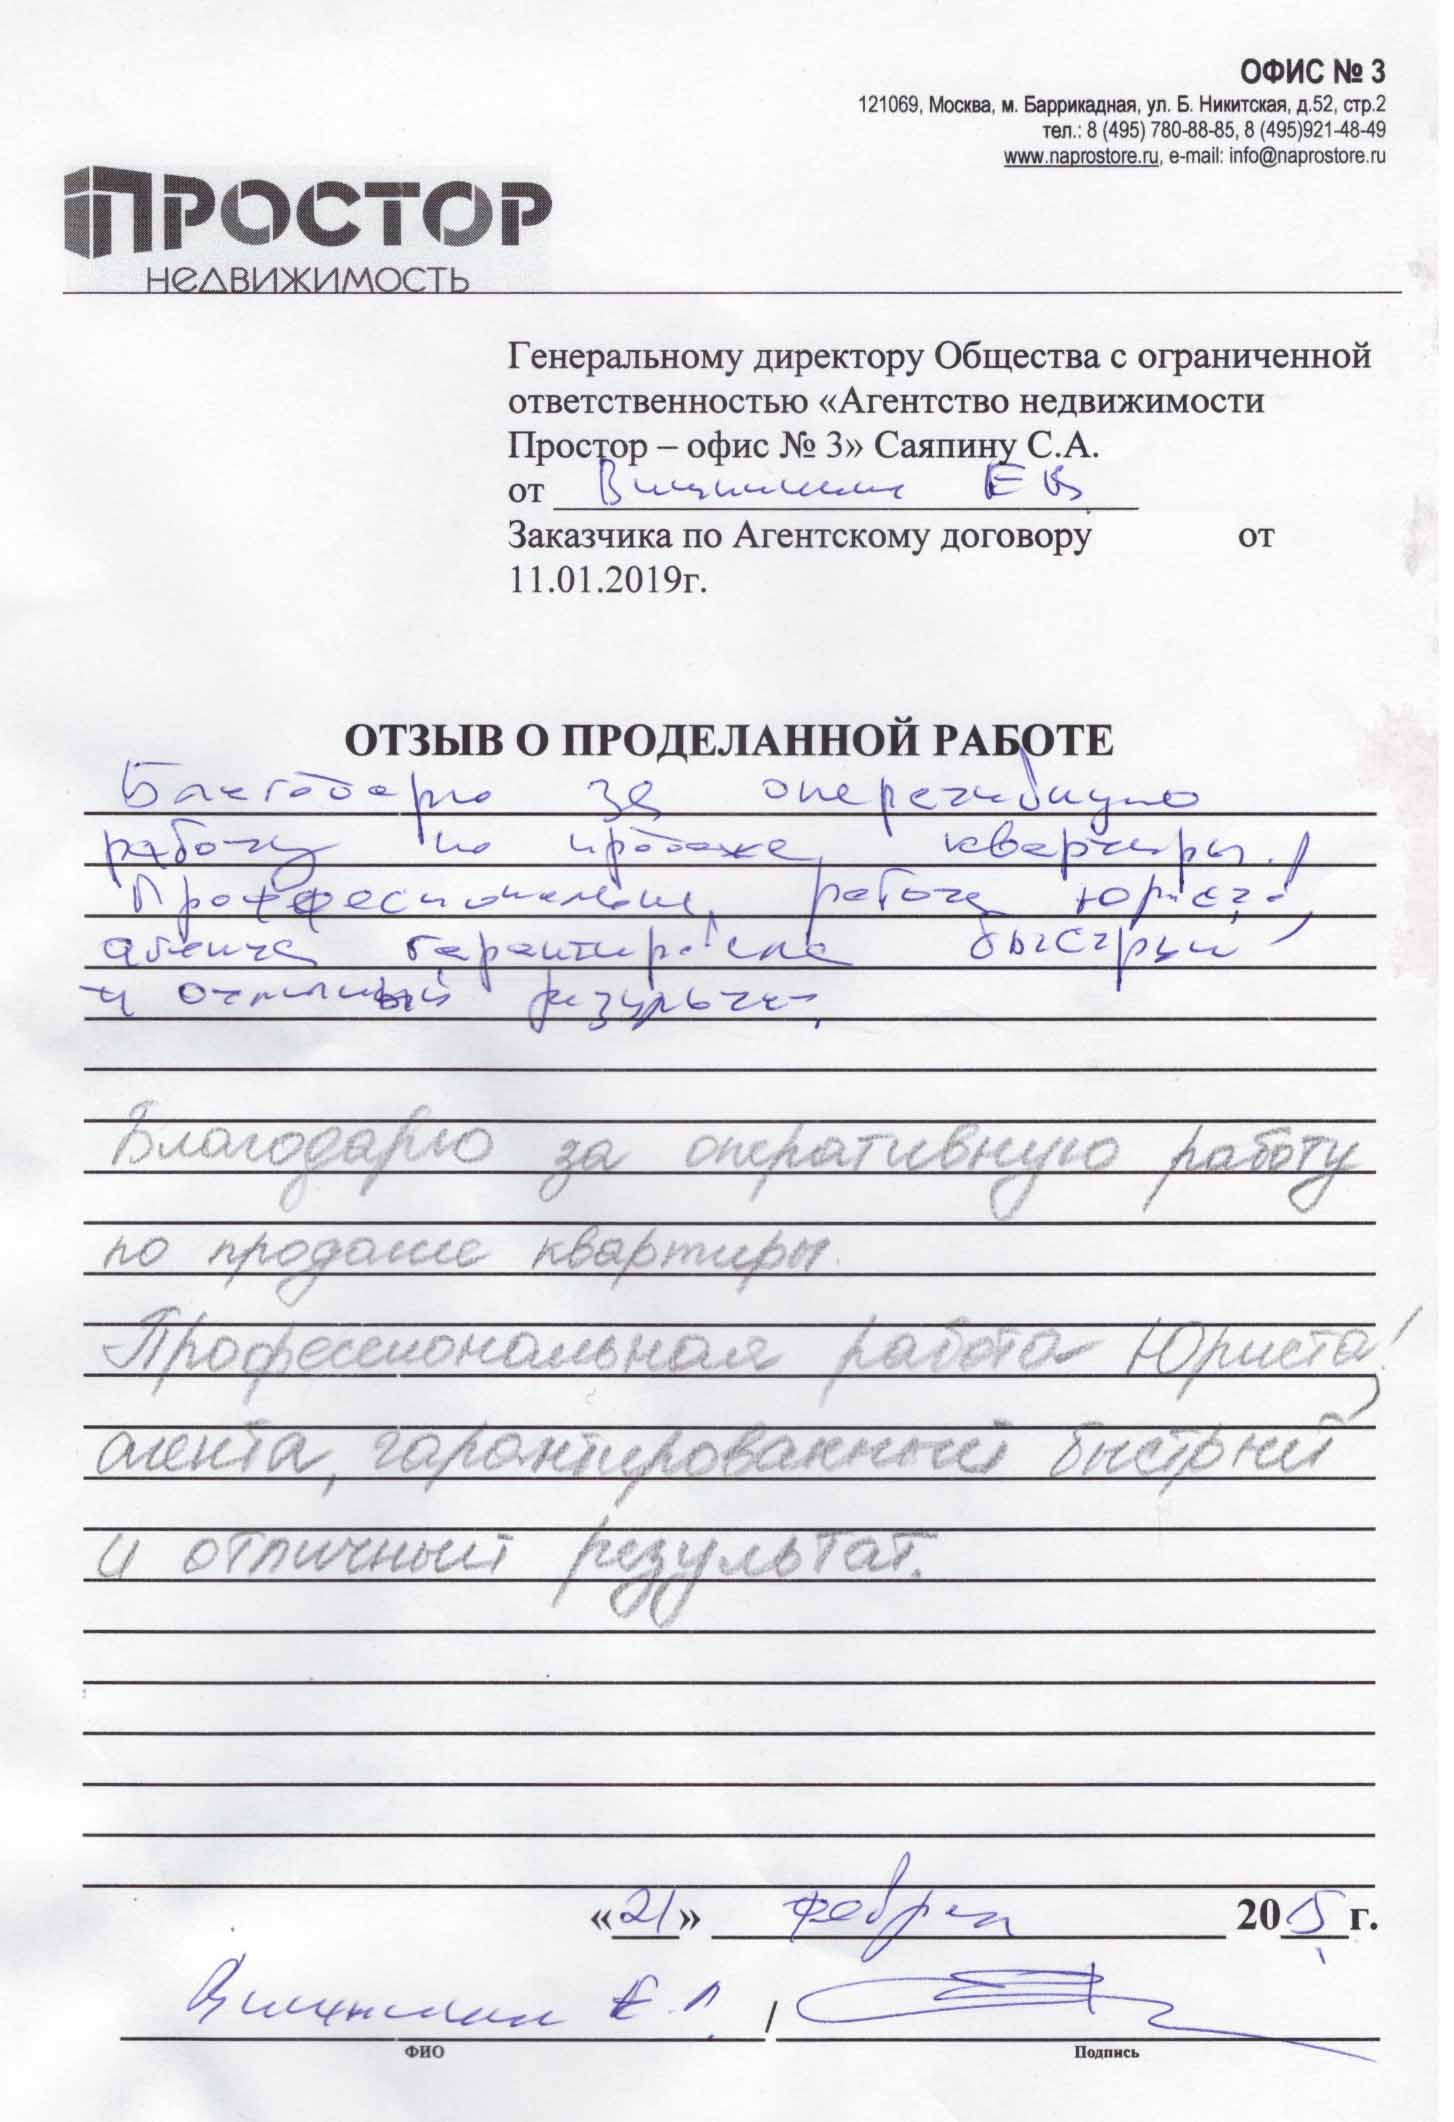 ОФИС № 3
121069, Москва, м. Баррикадная, ул. Б. Никитская, д.52, стр.2
тел.: 8 (495) 780-88-85, 8 (495)921-48-49
www.naprostore.ru, e-mail: info@naprostore.ru
ПРОСТОР
НЕДВИЖИМОСТЬ
Генеральному директору Общества с ограниченной
ответственностью «Агентство недвижимости
Простор – офис № 3» Саяпину С.А.
от
Заказчика по Агентскому договору от
11.01.2019г.
ОТЗЫВ О ПРОДЕЛАННОЙ РАБОТЕ
Благодарю за оперативную
работу по продаже квартиры.
Профессиональная работа юриста,
агента быстрый
и отличный результат.
Благодарю за оперативную работу
по продаже квартиры.
Профессиональная работа Юриста!
агента, гарантированный быстрый
и отличный результат.
«21» февраля 20 г.
/
ФИО Подпись